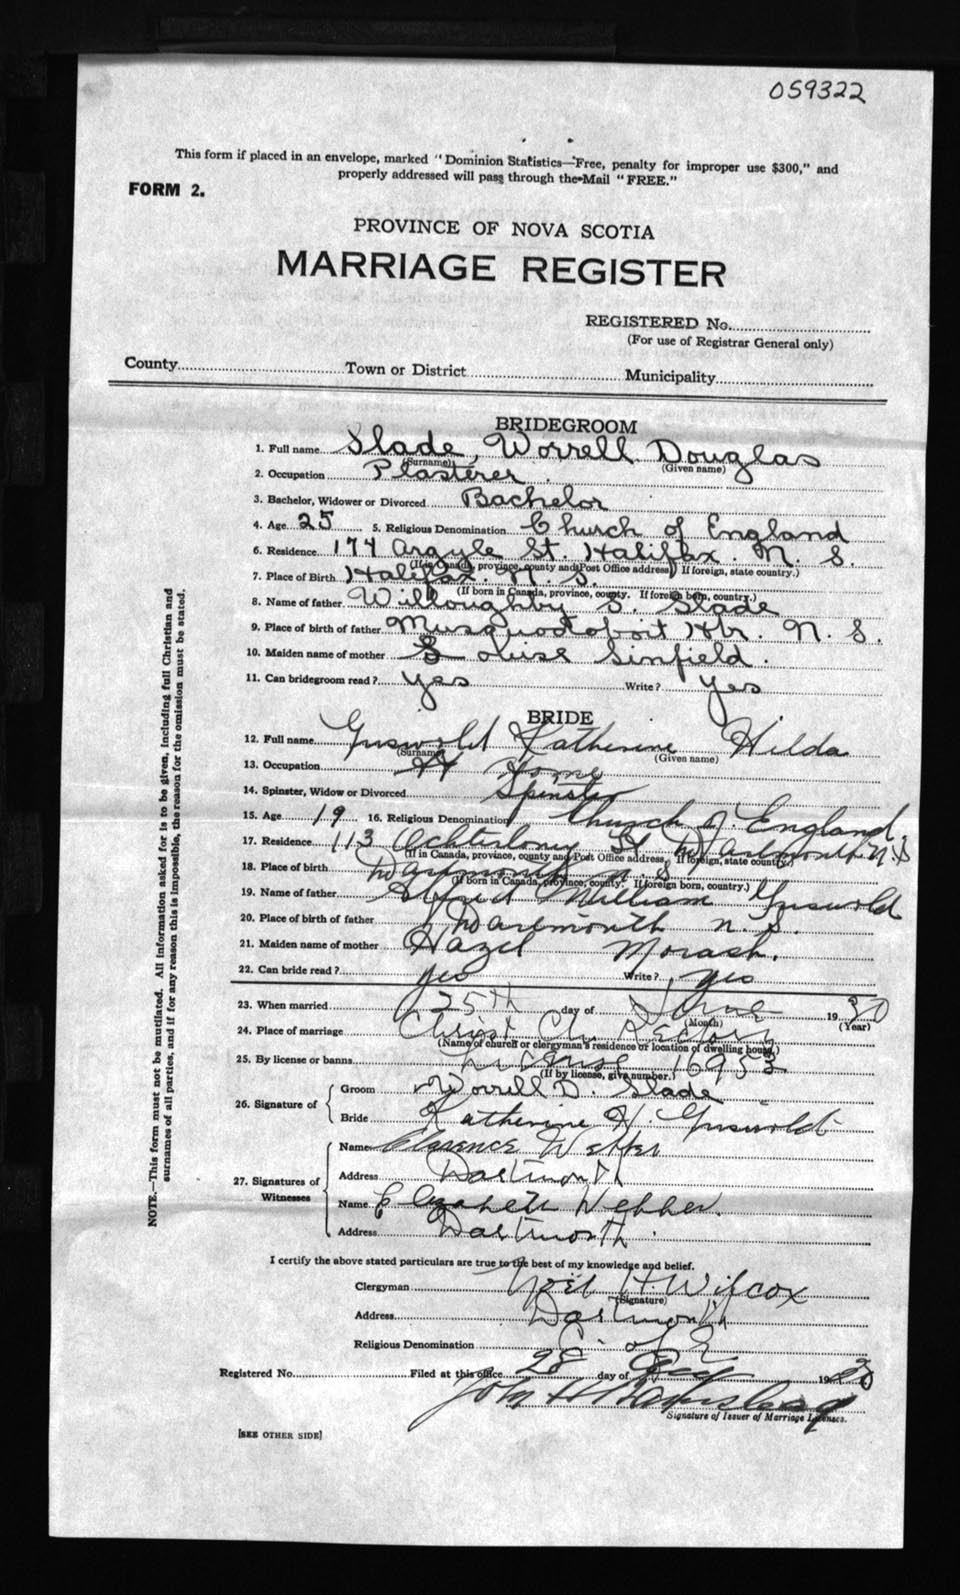 059322
This form if placed in an envelope, marked "Dominion Statistics—Free, penalty for improper use $300," and
properly addressed will pass through the Mail "FREE."
FORM 2.
PROVINCE OF NOVA SCOTIA
MARRIAGE REGISTER
REGISTERED No.
(For use of Registrar General only)
County Town or District Municipality
BRIDEGROOM
1. Full name Slade, Worrell Douglas
(Surname) (Given name)
2. Occupation Plasterer
3. Bachelor, Widower or Divorced Bachelor
4. Age 25 5. Religious Denomination Church of England
6. Residence 174 Argyle St. Halifax. N. S.
(If in Canada, province, county and Post Office address) If foreign, state country.)
7. Place of Birth Halifax. N. S.
(If born in Canada, province, county. If foreign born, country.)
8. Name of father Willoughby S. Slade
9. Place of birth of father Musquodoboit Hbr. N. S.
10. Maiden name of mother Louise Sinfield.
11. Can bridegroom read? yes Write? yes
BRIDE
12. Full name Griswold Katherine Hilda
(Surname) (Given name)
13. Occupation At Home
14. Spinster, Widow or Divorced Spinster
15. Age 19 16. Religious Denomination Church of England.
17. Residence 113 Ochterloney St Dartmouth N.S
(If in Canada, province, county and Post Office address, If foreign, state country.)
18. Place of birth Dartmouth N. S
(If born in Canada, province, county. If foreign born, country.)
19. Name of father Albert William Griswold
20. Place of birth of father Dartmouth N. S.
21. Maiden name of mother Hazel Morash.
22. Can bride read? yes Write? yes
23. When married 25th day of June 1930
(Month) (Year)
24. Place of marriage Christ Ch. Rectory
(Name of church or clergyman's residence or location of dwelling house)
25. By license or banns License 16953
(If by license, give number.)
26. Signature of
Groom Worrell D. Slade
Bride Katherine H. Griswold
27. Signatures of Witnesses
Name Clarence Webber
Address Dartmouth
Name Elizabeth Webber.
Address Dartmouth.
I certify the above stated particulars are true to the best of my knowledge and belief.
Clergyman Noel H. Wilcox
(Signature)
Address Dartmouth
Religious Denomination C. of E.
Registered No. Filed at this office 28 day of 19
John H
Signature of Issuer of Marriage Licenses.
[SEE OTHER SIDE]
NOTE.—This form must not be mutilated. All information asked for is to be given, including full Christian and
surnames of all parties, and if for any reason this is impossible, the reason for the omission must be stated.